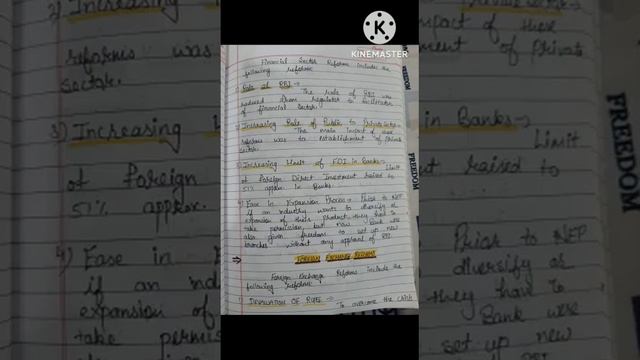 KINEMASTER
Financial Sector Reforms includes the
following reforms:
1) Role of RBI →
The role of RBI was
reduced from regulator to facilitator
of financial sector.
2) Increasing Role of Private Sector →
The main impact of these
reforms was to establishment of Private
sector.
3) Increasing limit of FDI in Banks →
Limit
of Foreign Direct Investment raised to
51% approx. in Banks.
4) Ease in Expansion Process → Prior to NEP
if an industry wants to diversify or
expansion of their product, they had to
take permission, but now Bank were
also given freedom to set up new
branches without any approval of RBI.
FOREIGN EXCHANGE REFORMS
Foreign Exchange Reforms include the
following reforms:
1) DEVALUATION OF RUPEE → To overcome the crisis
2) Increasing
reforms was
sector.
3) Increasing
of Foreign
51% approx.
4) Ease in
if an ind
expansion of
take permis
impact of these
ment of Private
in Banks →
Limit
ment raised to
Prior to NEP
diversify or
they had to
Bank were
set up new
FREEDOM
FREEDOM